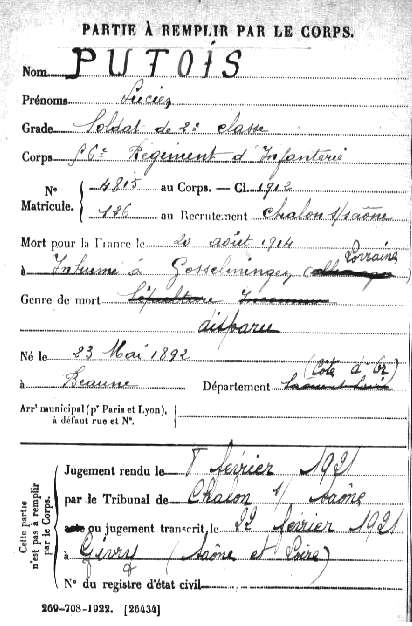 PARTIE À REMPLIR PAR LE CORPS.
Nom PUTOIS
Prénoms Lucien
Grade Soldat de 2e classe
Corps 56e Régiment d'Infanterie
Nos Matricule. { 4815 au Corps. — Cl. 1912
176 au Recrutement Chalon s/Saône
Mort pour la France le 20 août 1914
à Inhumé à Gosselmingen (Lorraine)
Genre de mort Sépulture Inconnue
disparu
Né le 23 Mai 1892
à Beaune Département (Côte d'Or) Saône et Loire
Arrt municipal (pr Paris et Lyon), à défaut rue et No.
Cette partie n'est pas à remplir par le Corps.
Jugement rendu le 8 février 1921
par le Tribunal de Chalon s/ Saône
acte ou jugement transcrit le 22 février 1921
à Givry (Saône et Loire)
No du registre d'état civil
269-708-1922. [26434]